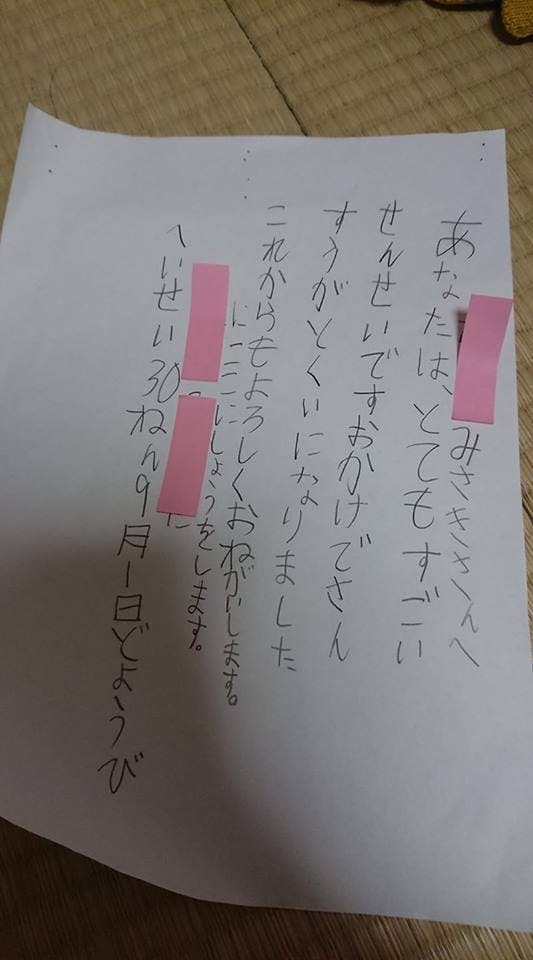 みさきさんへ
あなたは、とてもすごい
せんせいですおかげでさん
すうがとくいになりました
これからもよろしくおねがいします。
ここにしょうをします。
へいせい30ねん9月1日どようび